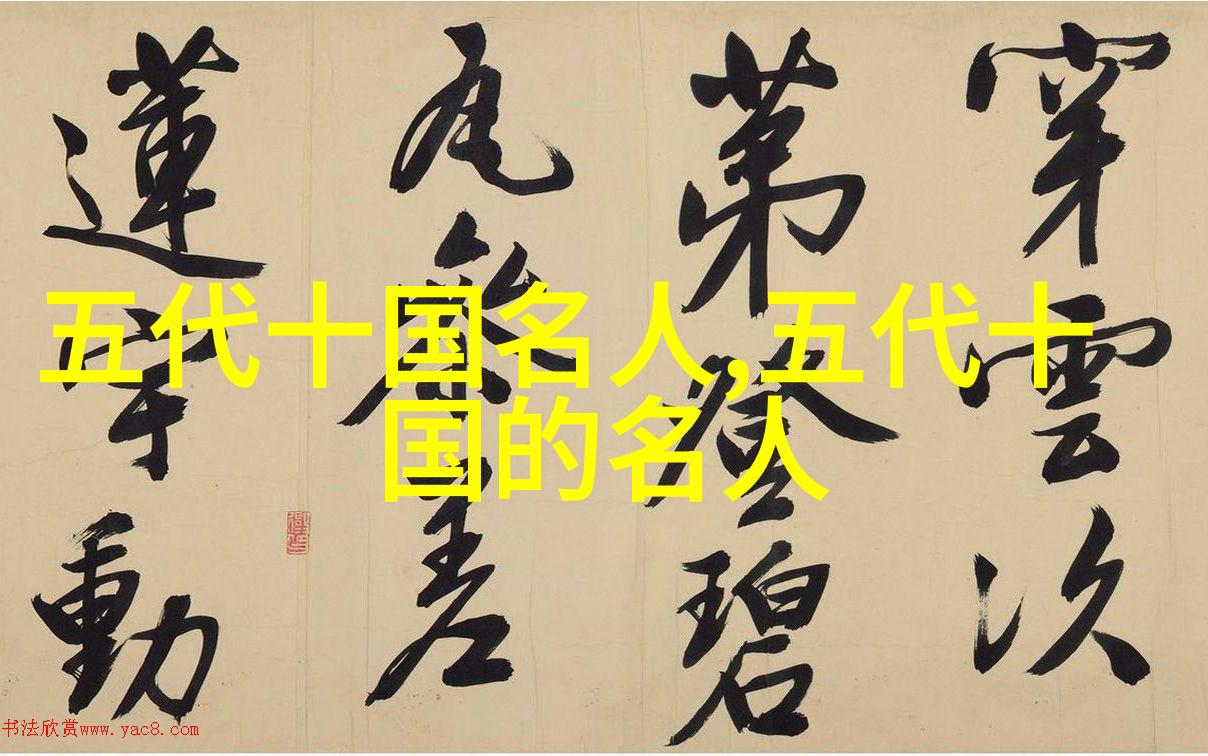 五代十国名人,五代十
国的名人
穿雲次
苐登碧
瓦叅差
蓮宇動
书法欣赏www.yac8.com